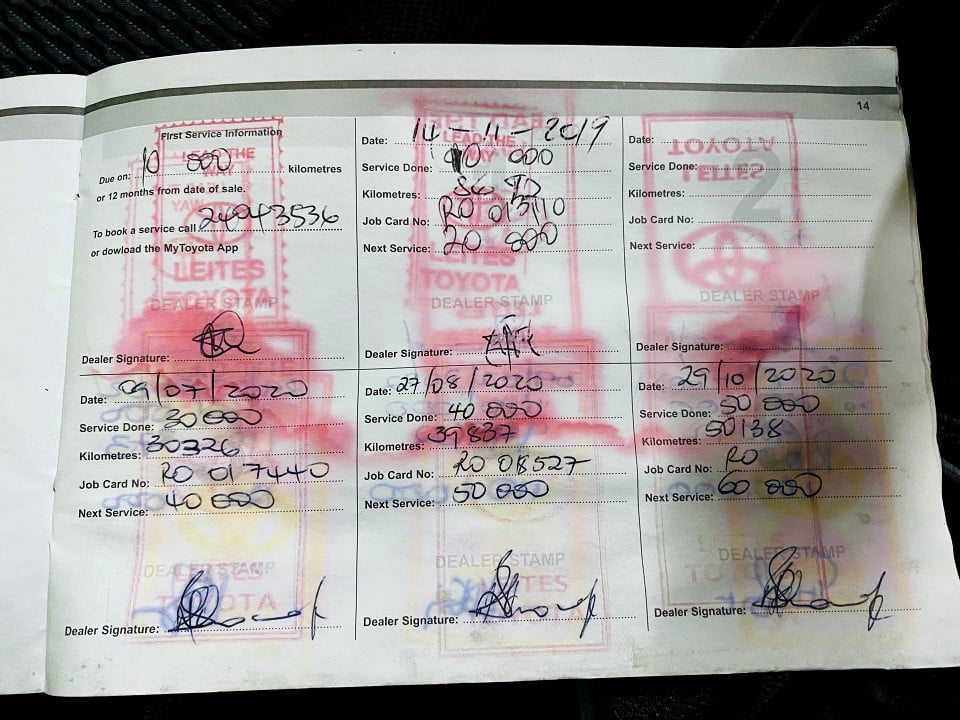 14
First Service Information
Due on: 10 000 kilometres
or 12 months from date of sale.
To book a service call
or dowload the MyToyota App
LEAD THE
WAY
LEITES
TOYOTA
DEALER STAMP
Dealer Signature:
Date: 14-11-2019
Service Done: 10 000
Kilometres:
Job Card No: RO 013110
Next Service: 20 000
LEAD THE
TOYOTA
DEALER STAMP
Dealer Signature:
Date:
Service Done:
Kilometres:
Job Card No:
Next Service:
2
TOYOTA
LEITES
DEALER STAMP
Dealer Signature:
Date: 09/07/2020
Service Done: 30 000
Kilometres: 30326
Job Card No: RO 017440
Next Service: 40 000
DEALER STAMP
LEITES
TOYOTA
Dealer Signature:
Date: 27/08/2020
Service Done: 40 000
Kilometres: 39837
Job Card No: RO 08527
Next Service: 50 000
DEALER STAMP
LEITES
Dealer Signature:
Date: 29/10/2020
Service Done: 50 000
Kilometres: 50138
Job Card No: RO
Next Service: 60 000
DEALER STAMP
Dealer Signature: